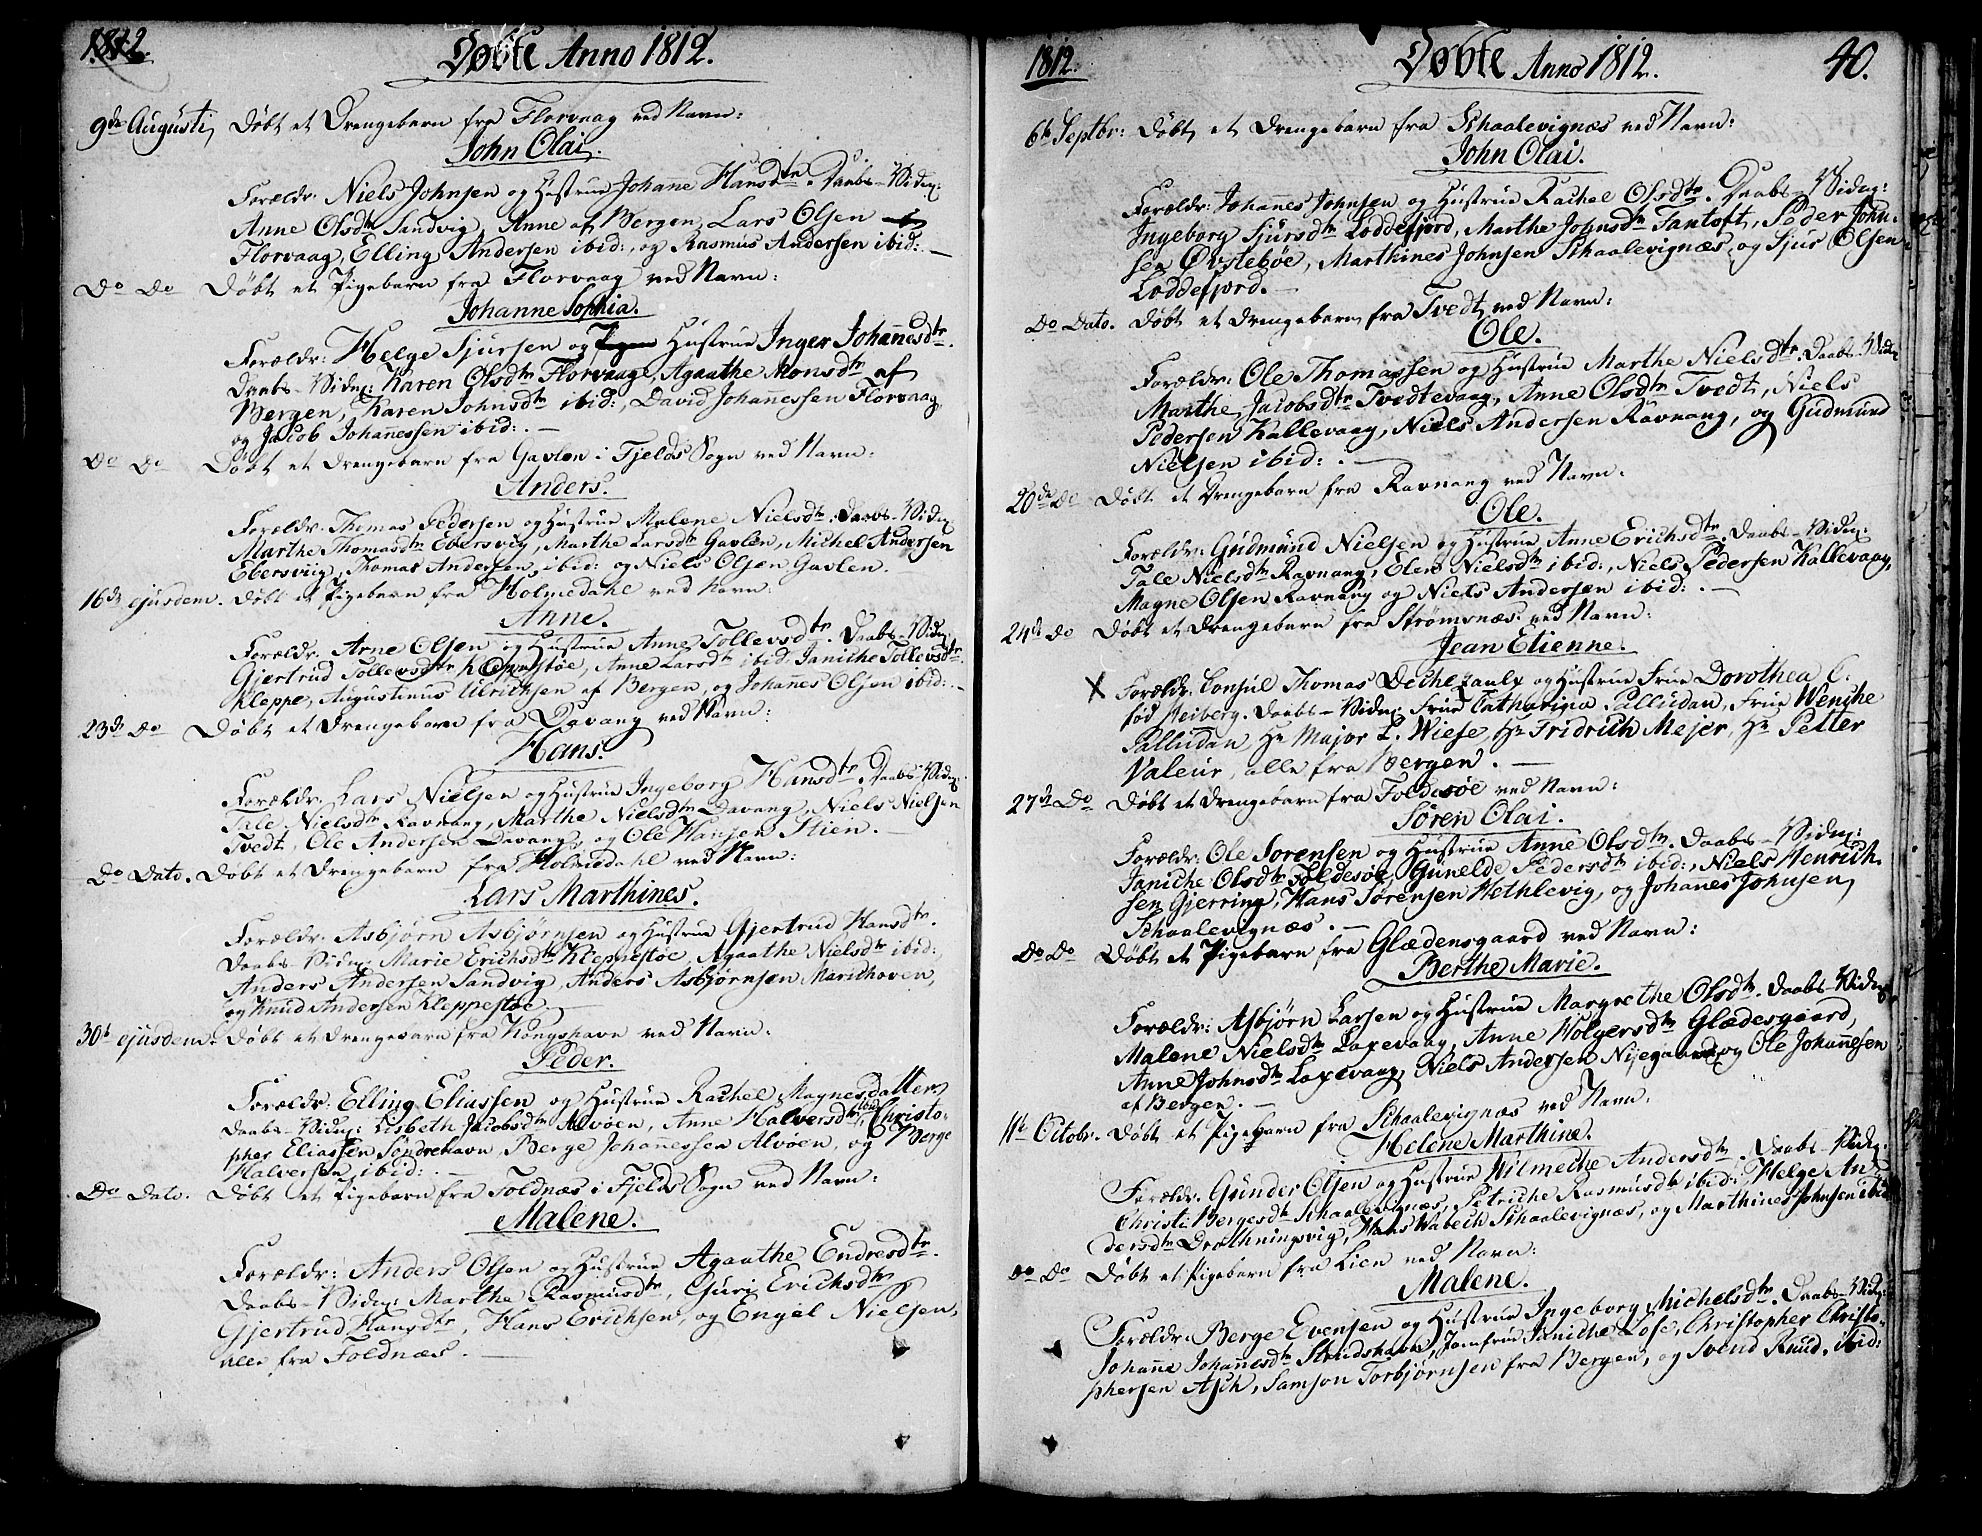 1812.
Døbte Anno 1812.
9de Augusti, Døbt et Drengebarn fra Florvaag ved Navn:
John Olai.
Forældr. Niels Johnsen og Hustrue Johanne Hansdtr. Daabs-Vidn:
Anne Olsdtr Sandvig, Anne af Bergen, Lars Olsen
Florvaag, Elling Andersen ibid:, og Rasmus Andersen ibid: —
Do Do Døbt et Pigebarn fra Florvaag ved Navn:
Johanne Sophia.
Forældr: Helge Sjursen og Hustrue Inger Johannesdtr.
Daabs-Vidn: Karen Olsdtr Florvaage, Agaathe Monsdtr af
Bergen, Karen Johnsdtr ibid:, David Johanessen Florvaag,
og Jacob Johannessen ibid: . —
Do Do Døbt et Drengebarn fra Gavlen i Fjelds Sogn ved Navn:
Anders.
Forældr. Thomas Pedersen og Hustrue Malene Nielsdtr. Daabs-Vidn:
Marthe Thomasdtr Ebersviig, Marthe Larsdtr Gavlen, Michel Andersen
Ebersviig, Thomas Andersen ibid: og Niels Olsen Gavlen.
16de ejusdem. Døbt et Pigebarn fra Holmedahl ved Navn:
Anne.
Forældr. Arne Olsen og Hustrue Anne Tollevsdtr. Daabs-Vidn:
Gjertrud Tollevsdtr Kleppestøe, Anne Larsdtr ibid. Janiche Tollevsdtr.
Kleppe, Augustinus Ulrichsen af Bergen, og Johannes Olsen ibid: . —
23de Do Døbt et Drengebarn fra Davang ved Navn:
Hans.
Forældr. Lars Nielsen og Hustrue Ingeborg Hansdtr. Daabs-Vidn:
Tale Nielsdtr Ravnang, Marthe Nielsdtr Davang, Niels Nielsen
Tvedt, Ole Andersen Davang, og Ole Hansen Stien. —
Do Dato. Døbt et Drengebarn fra Holmedahl ved Navn:
Lars Marthines.
Forældr. Asbjørn Asbjørnsen og Hustrue Gjertrud Hansdtr.
Daabs-Vidn: Marie Erichsdtr Kleppestøe, Agaathe Nielsdtr ibid:
Anders Andersen Sandvig, Anders Asbjørnsen Marichoven,
og Knud Andersen Kleppestøe. —
30te ejusdem. Døbt et Drengebarn fra Kongshavn ved Navn:
Peder.
Forældr: Elling Eliassen og Hustrue Rachel Magnesdatter.
Daabs-Vidn: Lisbeth Jacobsdtr Alvøen, Anne Halversdtr ibid: Christo-
pher Eliassen Søndrehavn, Berge Johannessen Alvøen, og Berge
Halversen ibid: . —
Do Dato. Døbt et Pigebarn fra Foldnæs i Fjelds Sogn ved Navn:
Malene.
Forældr: Anders Olsen og Hustrue Agaathe Endresdtr.
Daabs-Vidn: Marthe Rasmusdtr, Guri Erichsdtr
Gjertrud Hansdtr, Hans Erichsen, og Engel Nielsen,
alle fra Foldnæs. —
1812.
Døbte Anno 1812.
40.
6te Septbr: Døbt et Drengebarn fra Schaalevignæs ved Navn:
John Olai.
Forældr: Johannes Johnsen og Hustrue Rachel Olsdtr. Daabs-Vidn:
Ingeborg Sjursdtr Loddefjord, Marthe Johnsdtr Fantoft, Peder John-
sen Øvstebøe, Marthines Johnsen Schaalevignæs, og Sjur Olsen
Loddefjord. —
Do Dato. Døbt et Drengebarn fra Tvedt ved Navn:
Ole.
Forældr: Ole Thomassen og Hustrue Marthe Nielsdtr. Daabs-Vidn
Marthe Jacobsdtr Tvedtevaag, Anne Olsdtr Tvedt, Niels
Pedersen Kallevaag, Niels Andersen Ravnang, og Gudmund
Nielsen ibid: . —
20de Do Døbt et Drengebarn fra Ravnang ved Navn:
Ole.
Forældr: Gudmund Nielsen og Hustrue Anne Erichsdtr. Daabs-Vidn:
Tale Nielsdtr Ravnang, Olene Nielsdtr ibid:, Niels Pedersen Kallevaag,
Magne Olsen Ravnang og Niels Andersen ibid: . —
24de Do Døbt et Drengebarn fra Strømsnæs ved Navn:
Jean Etienne.
X Forældr. Consul Thomas Dechezaulx og Hustrue Frue Dorothea C.
fød Heiberg. Daabs-Vidn: Frue Catharina Palludan, Frue Wenche
Palludan, Hr Major L. Wiese, Hr Fridrich Mejer, Hr Petter
Valeur, alle fra Bergen. —
27de Do Døbt et Drengebarn fra Foldesøe ved Navn:
Søren Olai.
Forældr: Ole Sørensen og Hustrue Anne Olsdtr. Daabs-Vidn:
Janiche Olsdtr Foldesøe, Gunelde Pedersdtr ibid:, Niels Henrich-
sen Gjerring, Hans Sørensen Hethlevig, og Johannes Johnsen,
Schaalevignæs. —
Do Do Døbt et Pigebarn fra Glædensgaard ved Navn:
Berthe Marie.
Forældr: Asbjørn Larsen og Hustrue Margrethe Olsdtr. Daabs-Vidn:
Malene Nielsdtr Laxevaag, Anne Holgersdtr Glædesgaard,
Anne Johnsdtr Laxevaag, Niels Andersen Nyegaard, og Ole Johannesen
af Bergen. —
11te Octobr. Døbt et Pigebarn fra Schaalevignæs ved Navn:
Helene Marthine.
Forældr. Gunder Olsen og Hustrue Wilmeche Andersdtr. Daabs-Vidn:
Christi Bergesdtr Schaalevignæs, Petriche Rasmusdtr ibid:, Helge An-
dersdtr Drothningsvig, Hans Wabech Schaalevignæs, og Marthines Johnsen ibid:
Do Do Døbt et Pigebarn fra Lien ved Navn:
Malene.
Forældr. Berge Evensen og Hustrue Ingeborg Michelsdtr. Daabs-Vidn:
Johanne Johannesdtr Strudshavn, Jomfrue Janiche Lose, Christopher Christo-
phersen Asch, Samson Torbjørnsen fra Bergen, og Svend Knud. ibid: